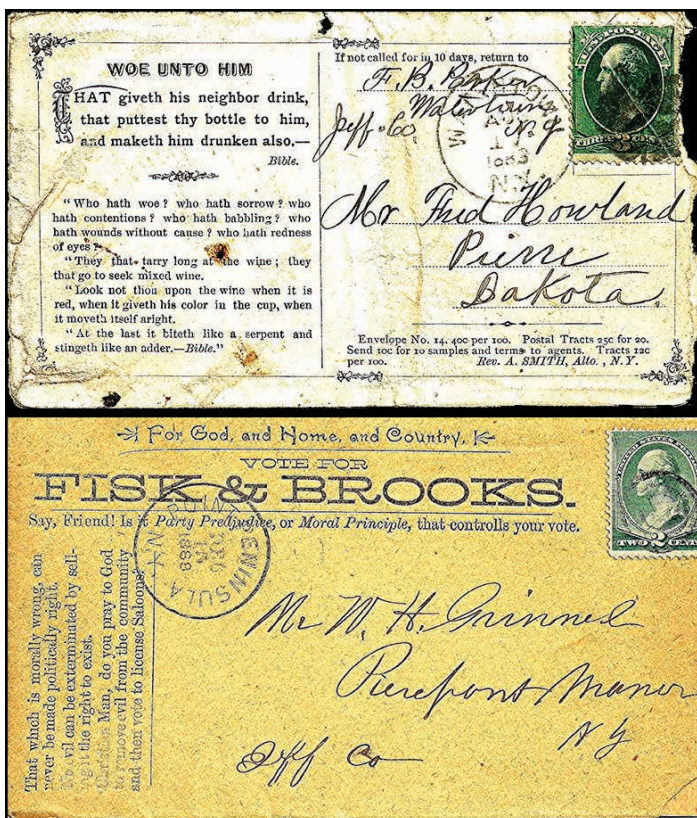 WOE UNTO HIM
THAT giveth his neighbor drink,
that puttest thy bottle to him,
and maketh him drunken also.—
Bible.
"Who hath woe? who hath sorrow? who
hath contentions? who hath babbling? who
hath wounds without cause? who hath redness
of eyes?
"They that tarry long at the wine; they
that go to seek mixed wine.
"Look not thou upon the wine when it is
red, when it giveth his color in the cup, when
it moveth itself aright.
"At the last it biteth like a serpent and
stingeth like an adder.—Bible."
If not called for in 10 days, return to
F. B. Baker
Watertown
Jeff. Co. N.Y
1883
N.Y.
THREE CENTS
Mr Fred Howland
Pierre
Dakota.
Envelope No. 14, 40c per 100. Postal Tracts 25c for 20.
Send 10c for 10 samples and terms to agents. Tracts 12c
per 100. Rev. A. SMITH, Alto., N.Y.
For God, and Home, and Country,
VOTE FOR
FISK & BROOKS.
Say, Friend! Is it Party Predjudice, or Moral Principle, that controlls your vote.
That which is morally wrong, can
never be made politically right.
No evil can be exterminated by sell-
ing it the right to exist.
Christian Man, do you pray to God
to remove evil from the community
and then vote to license Saloons?
POINT PENINSULA N.Y.
DEC
15
1888
UNITED STATES POSTAGE
2
TWO CENTS
Mr W. H. Grinnel
Pierrepont Manor
N Y
Jeff Co